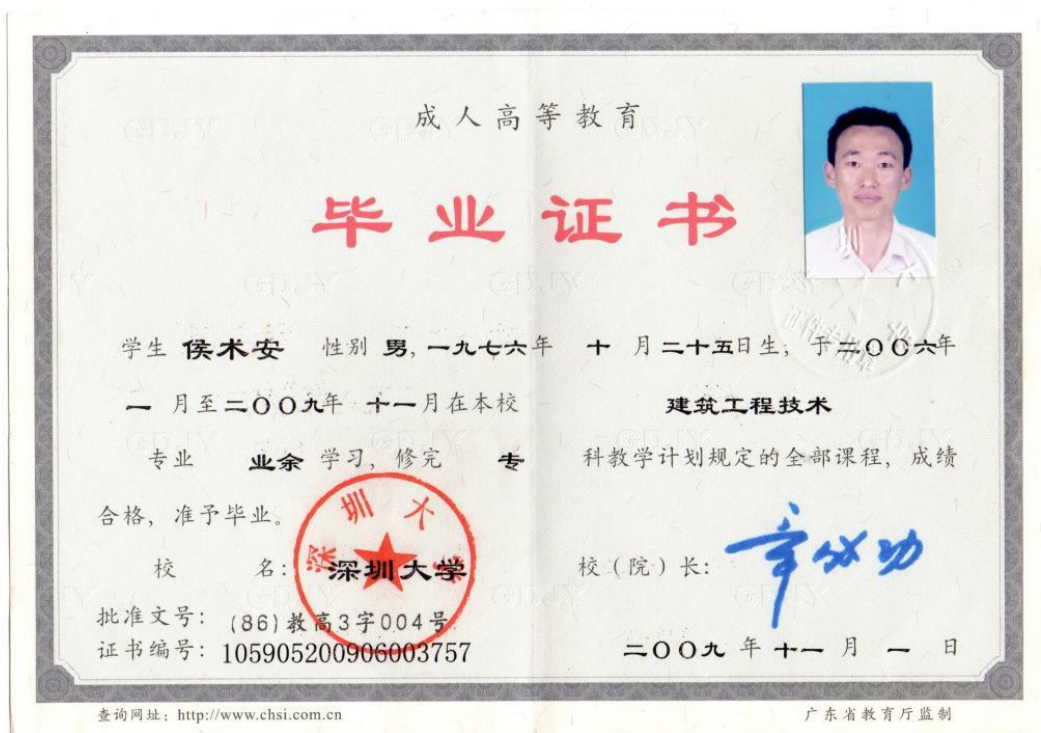 成人高等教育
毕业证书
学生 侯术安 性别 男, 一九七六年 十 月二十五日生, 于二〇〇六年
一 月至二〇〇九年 十一月在本校 建筑工程技术
专业 业余 学习, 修完 专 科教学计划规定的全部课程, 成绩
合格, 准予毕业。
深圳大学
校 名: 深圳大学 校(院)长: 章必功
批准文号: (86)教高3字004号
证书编号: 105905200906003757 二〇〇九 年 十一 月 一 日
查询网址: http://www.chsi.com.cn 广东省教育厅监制